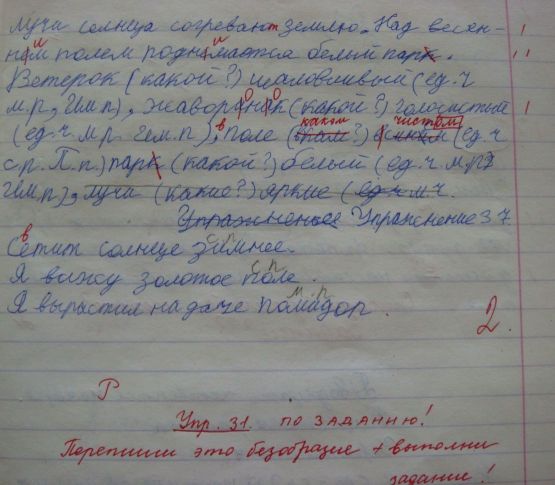 Лучи солнца согревают землю. Над весен-
ним полем поднимается белый парк.
Ветерок (какой?) шаловливый (ед.ч
м.р, Им.п), жаворонок (какой?) голосистый
(ед.ч м.р. Им.п), в поле (каком?) чистом (ед.ч
с.р. П.п.) парк (какой?) белый (ед.ч м.р
Им.п), луча (какие?) яркие (ед.ч м.ч.
Упражнение 37.
Светит солнце зимнее.
с.р.
Я вижу золотое поле.
м.р.
Я вырастил на даче помидор.
2.
Р
Упр. 31. по заданию!
Перепиши это безобразие + выполни
задание!